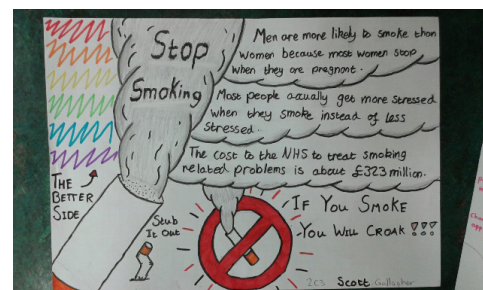 Stop
Smoking
Men are more likely to smoke than
women because most women stop
when they are pregnant.
Most people acually get more stressed
when they smoke instead of less
stressed.
The cost to the NHS to treat smoking
related problems is about £323 million.
THE
BETTER
SIDE
Stub
It Out
IF YOU SMOKE
YOU WILL CROAK !!!
2C3 Scott Gallagher